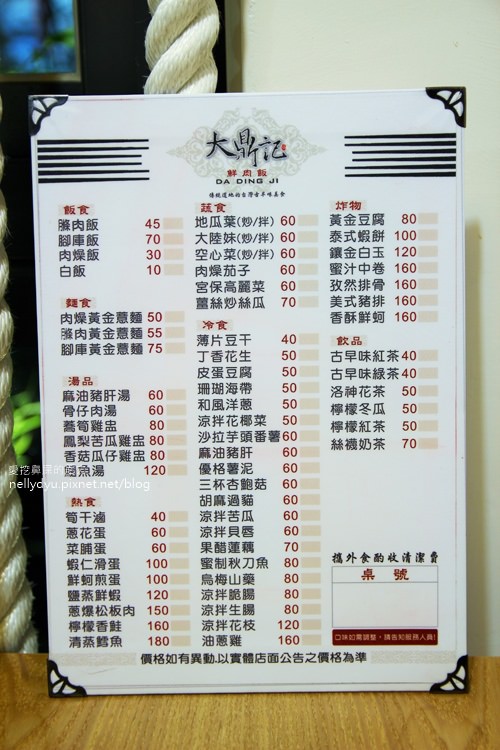 大鼎記
鮮肉飯
DA DING JI
傳統道地的台灣古早味美食
飯食
腿庫飯 70
肉燥飯 30
白飯 10
麵食
肉燥黃金蕎麵 50
腿庫黃金蕎麵 75
湯品
麻油豬肝湯 60
骨仔肉湯 60
蒜筍雞盅 80
鳳梨苦瓜雞盅 80
香菇瓜仔雞盅 80
魚湯 120
熱食
筍干滷 40
蔥花蛋 60
菜脯蛋 60
蝦仁滑蛋 100
鮮蚵煎蛋 100
鹽蒸鮮蝦 120
蔥爆松板肉 150
檸檬香鮭 160
清蒸鱈魚 180
蔬食
地瓜葉(炒/拌) 60
大陸妹(炒/拌) 60
空心菜(炒/拌) 60
肉燥茄子 60
宮保高麗菜 60
薑絲炒絲瓜 70
冷食
薄片豆干 40
丁香花生 50
皮蛋豆腐 50
珊瑚海帶 50
和風洋蔥 50
涼拌花椰菜 50
沙拉芋頭番薯 60
麻油豬肝 60
優格薯泥 60
三杯杏鮑菇 60
胡麻過貓 60
涼拌苦瓜 60
涼拌貝唇 60
果醋蓮藕 70
蜜制秋刀魚 80
烏梅山藥 80
涼拌脆腸 80
涼拌生腸 80
涼拌花枝 120
油蔥雞 160
炸物
黃金豆腐 80
泰式蝦餅 100
鑲金白玉 120
蜜汁中卷 160
孜然排骨 160
美式豬排 160
香酥鮮蚵 160
飲品
古早味紅茶 40
古早味綠茶 40
洛神花茶 50
檸檬冬瓜 50
檸檬紅茶 50
絲襪奶茶 70
攜外食酌收清潔費
桌號
口味如需調整，請告知服務人員!
價格如有異動,以實體店面公告之價格為準
nellydyu.pixnet.net/blog